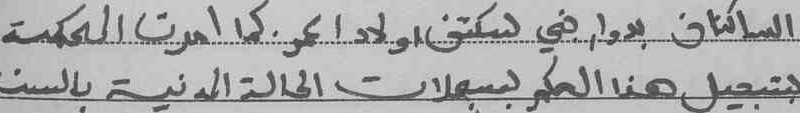 الساكنان بدوار بني سكتن اولاد اعمر. كما امرت المحكمة
بتسجيل هذا الحكم بسجلات الحالة المدنية بالسنة